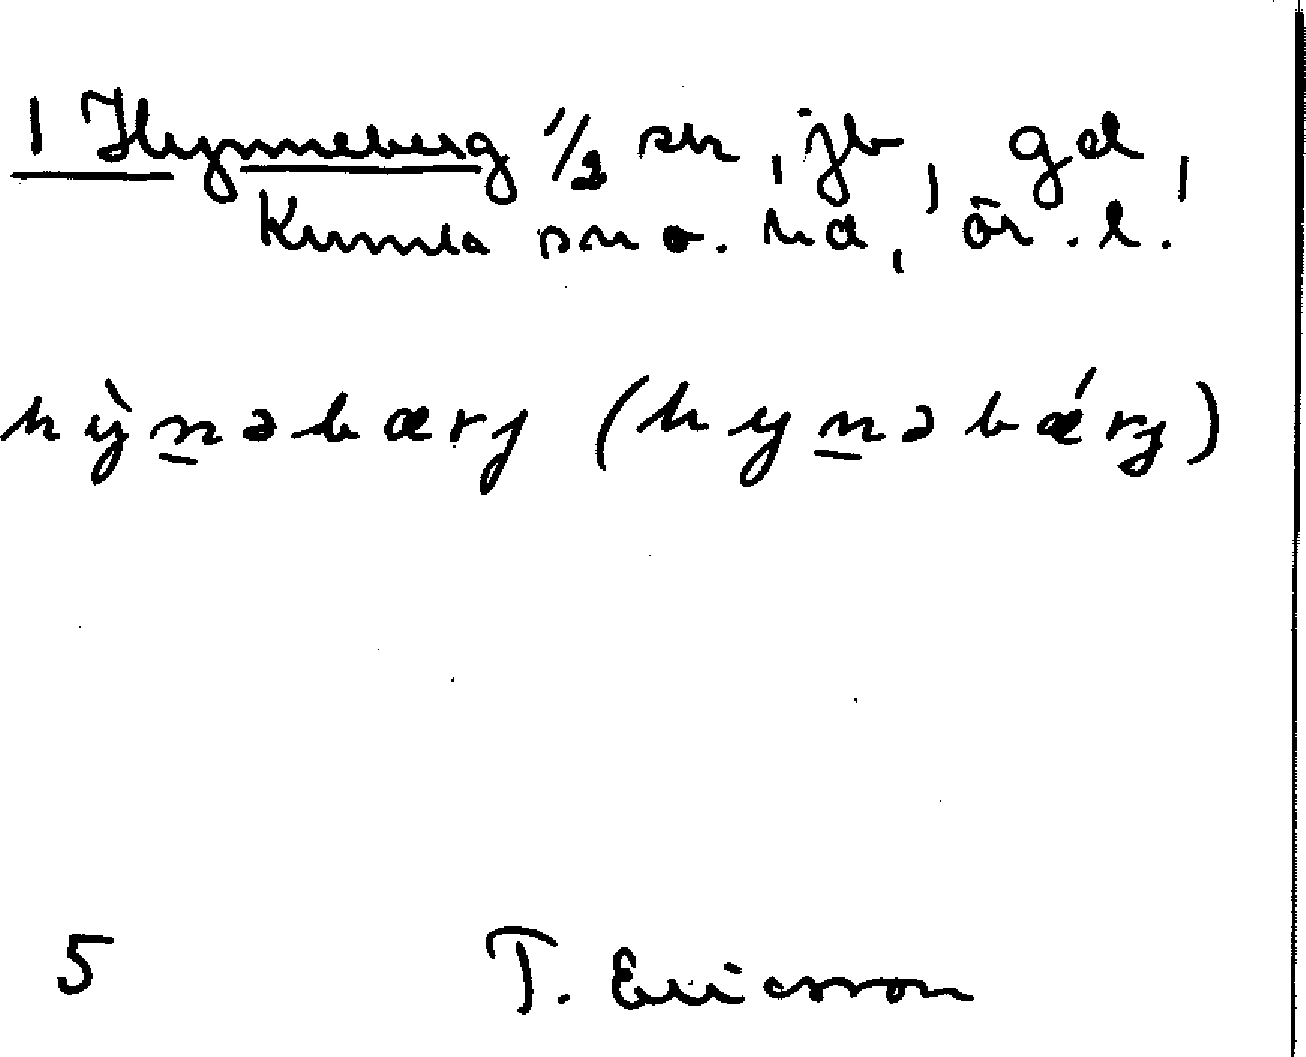 1 Hynneberg 1/2 sk, jb, gd,
Kumla sn o. hd, ör. l.
hỳn̲əbærj (hyn̲əbǽrj)
5 T. Ericsson